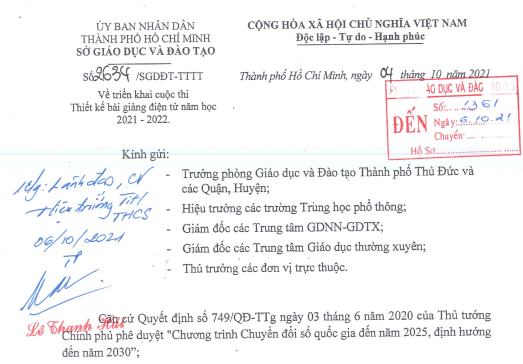 ỦY BAN NHÂN DÂN
THÀNH PHỐ HỒ CHÍ MINH
SỞ GIÁO DỤC VÀ ĐÀO TẠO
CỘNG HÒA XÃ HỘI CHỦ NGHĨA VIỆT NAM
Độc lập - Tự do - Hạnh phúc
Số 2634 /SGDĐT-TTTT
Thành phố Hồ Chí Minh, ngày 04 tháng 10 năm 2021
Về triển khai cuộc thi
Thiết kế bài giảng điện tử năm học
2021 - 2022.
ÁO DỤC VÀ ĐÀO
ĐẾN
Số: 1361
Ngày: 6.10.21
Chuyển:
Hồ Sơ
Kính gửi:
- Trưởng phòng Giáo dục và Đào tạo Thành phố Thủ Đức và
các Quận, Huyện;
- Hiệu trưởng các trường Trung học phổ thông;
- Giám đốc các Trung tâm GDNN-GDTX;
- Giám đốc các Trung tâm Giáo dục thường xuyên;
- Thủ trưởng các đơn vị trực thuộc.
Lãnh đạo, CV
Hiệu trưởng TiH
THCS
06/10/2021
Lê Thanh Hải
Căn cứ Quyết định số 749/QĐ-TTg ngày 03 tháng 6 năm 2020 của Thủ tướng
Chính phủ phê duyệt "Chương trình Chuyển đổi số quốc gia đến năm 2025, định hướng
đến năm 2030”;